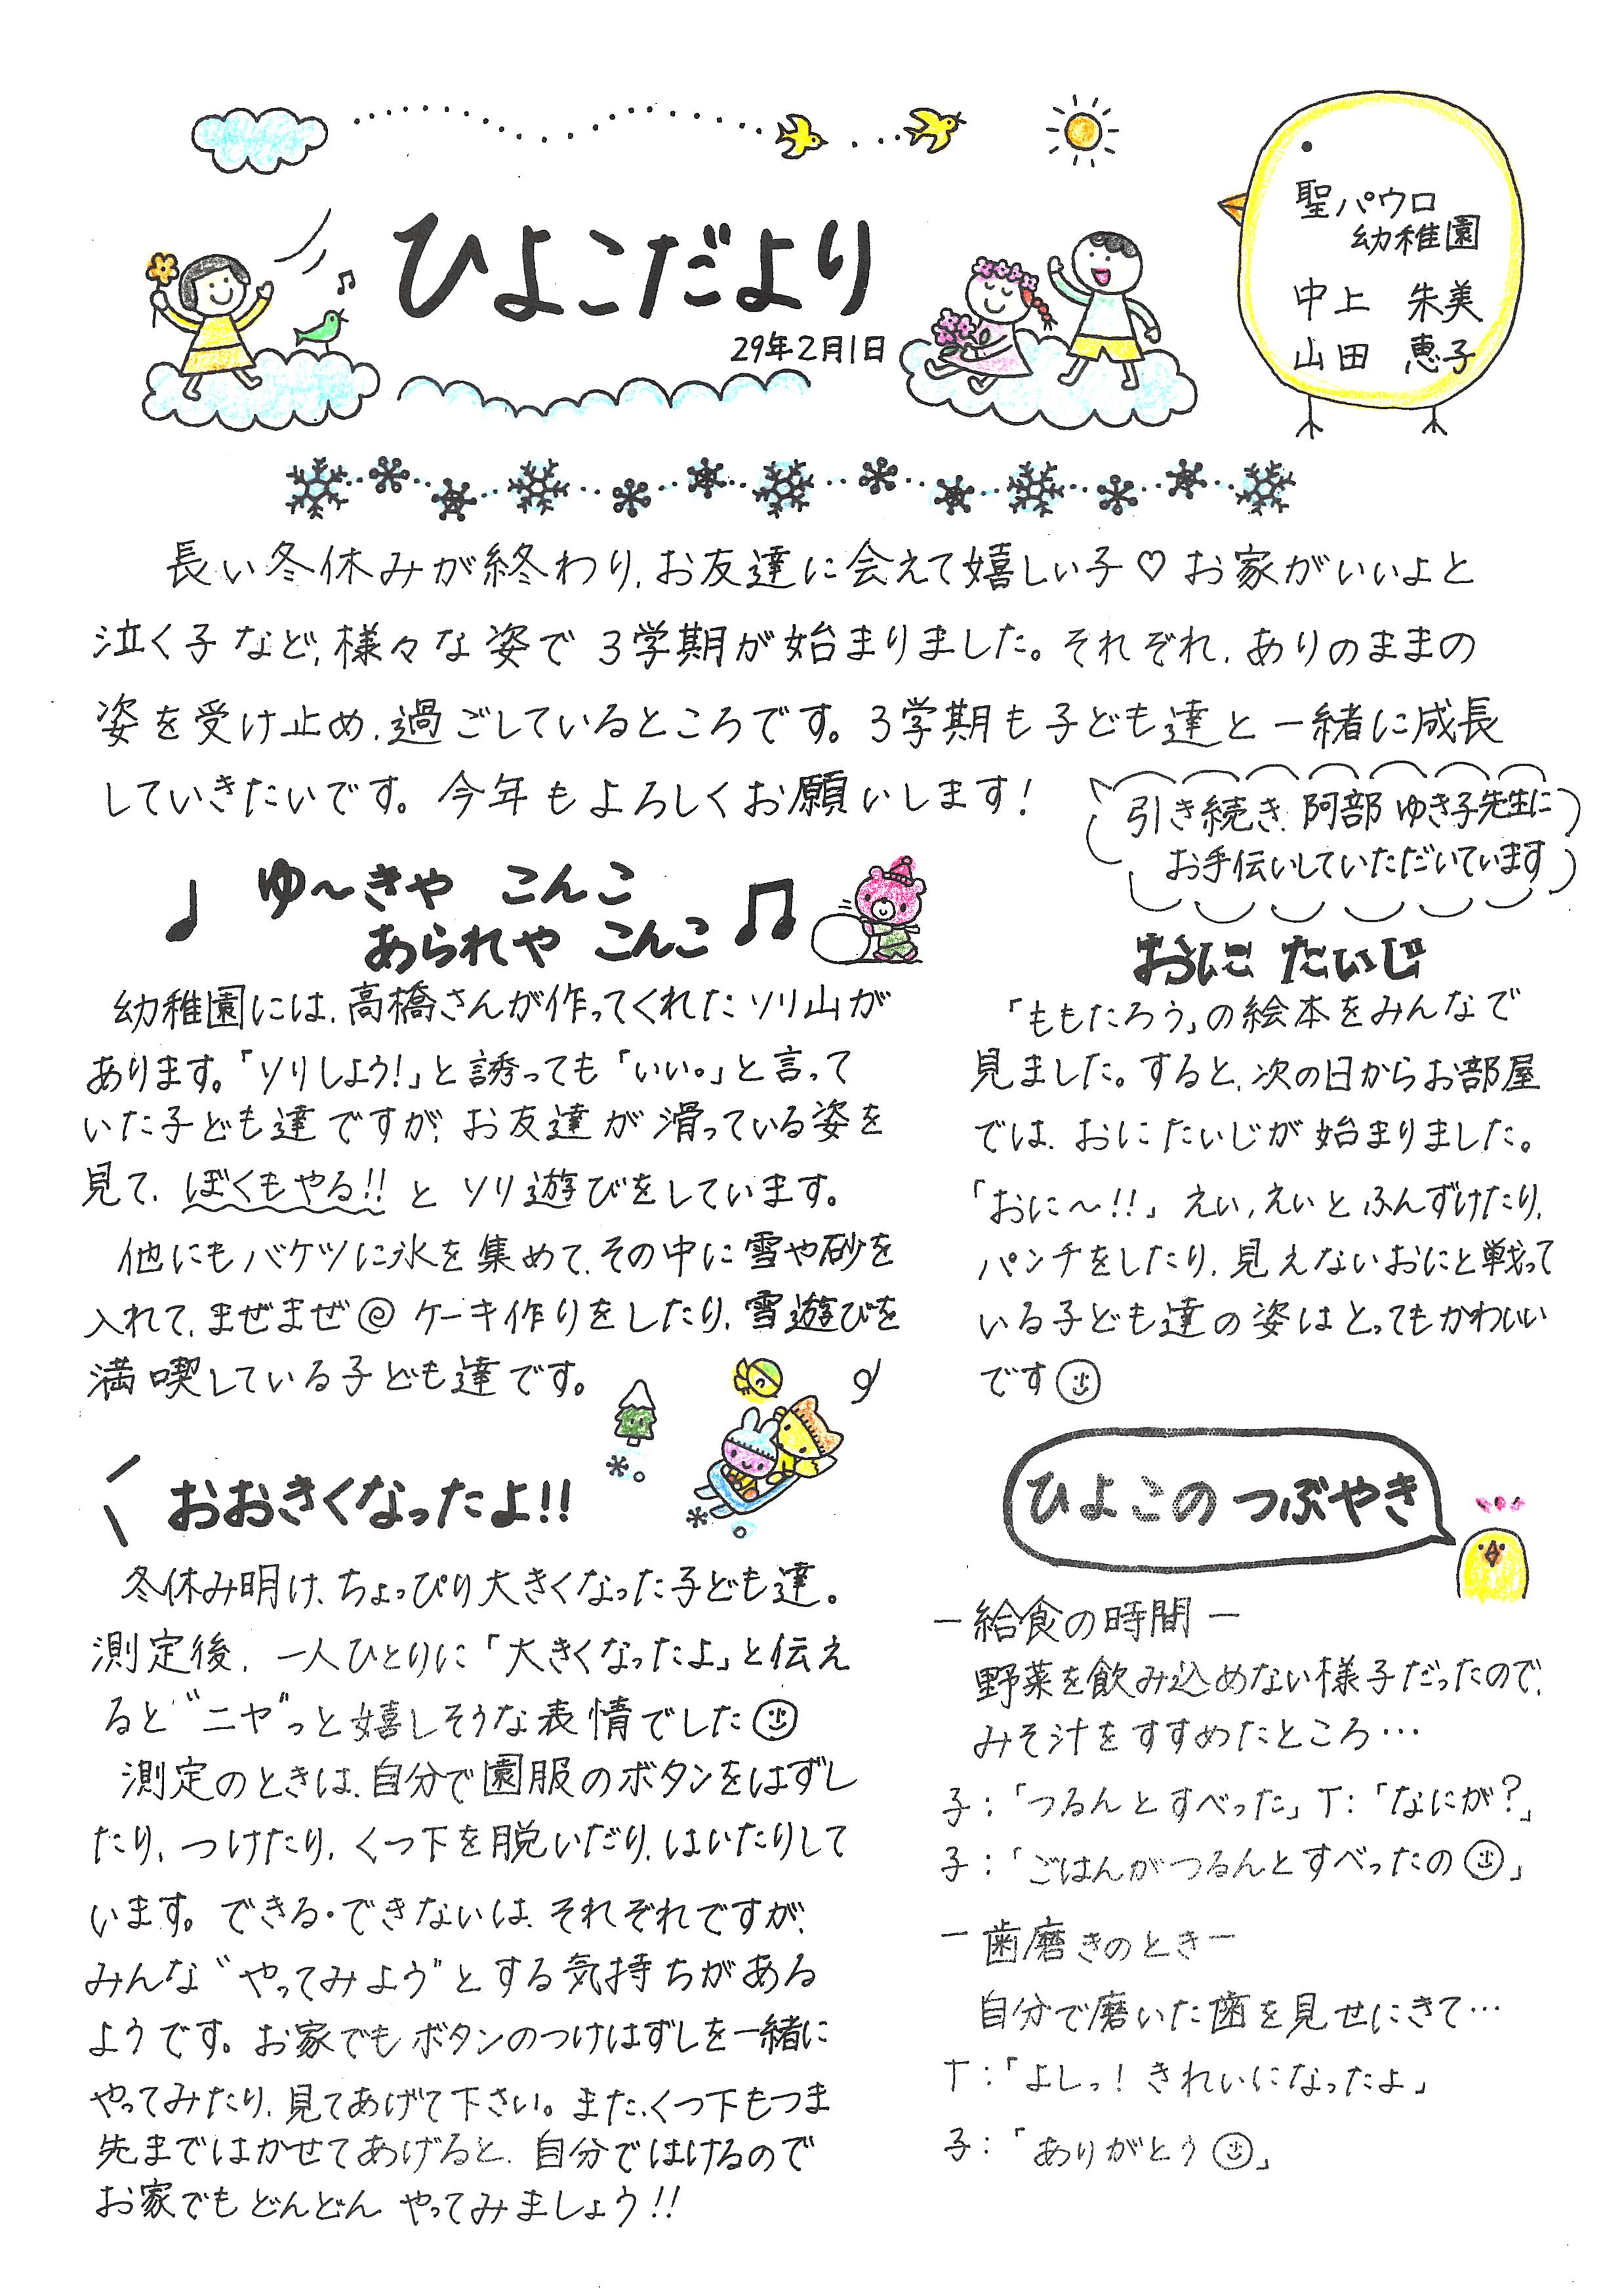 ひよこだより
29年2月1日
聖パウロ
幼稚園
中上 朱美
山田 恵子
長い冬休みが終わり、お友達に会えて嬉しい子♡お家がいいよと
泣く子など、様々な姿で3学期が始まりました。それぞれ、ありのままの
姿を受け止め、過ごしているところです。3学期も子ども達と一緒に成長
していきたいです。今年もよろしくお願いします！
引き続き、阿部 ゆき子先生に
お手伝いしていただいています
♩ ゆ～きや こんこ
あられや こんこ ♫
幼稚園には、高橋さんが作ってくれたソリ山が
あります。「ソリしよう！」と誘っても「いい。」と言って
いた子ども達ですが、お友達が滑っている姿を
見て、ぼくもやる!!とソリ遊びをしています。
他にもバケツに氷を集めて、その中に雪や砂を
入れて、まぜまぜ@ケーキ作りをしたり、雪遊びを
満喫している子ども達です。
おおきくなったよ!!
冬休み明け、ちょっぴり大きくなった子ども達。
測定後、一人ひとりに「大きくなったよ」と伝え
ると“ニヤ”っと嬉しそうな表情でした☺
測定のときは、自分で園服のボタンをはずし
たり、つけたり、くつ下を脱いだり、はいたりして
います。できる・できないは、それぞれですが、
みんな“やってみよう”とする気持ちがある
ようです。お家でもボタンのつけはずしを一緒に
やってみたり、見てあげて下さい。また、くつ下もつま
先まではかせてあげると、自分ではけるので
お家でもどんどん やってみましょう!!
おに たいじ
「ももたろう」の絵本をみんなで
見ました。すると、次の日からお部屋
では、おにたいじが始まりました。
「おに～!!」えい、えいとふんずけたり、
パンチをしたり、見えないおにと戦って
いる子ども達の姿はとってもかわいい
です☺
ひよこの つぶやき
ー給食の時間ー
野菜を飲み込めない様子だったので、
みそ汁をすすめたところ…
子：「つるんとすべった」T：「なにが？」
子：「ごはんがつるんとすべったの☺」
ー歯磨きのときー
自分で磨いた歯を見せにきて…
T：「よしっ！きれいになったよ」
子：「ありがとう☺」